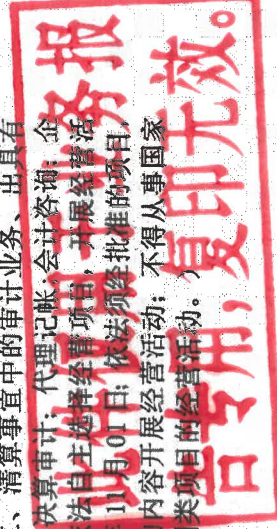 、清算事宜中的审计业务、出具有
决算审计；代理记帐；会计咨询；企
法自主选择经营项目，开展经营活
11月01日；依法须经批准的项目，
内容开展经营活动；不得从事国家
类项目的经营活动。）
此件仅用于业务报
专用，复印无效。